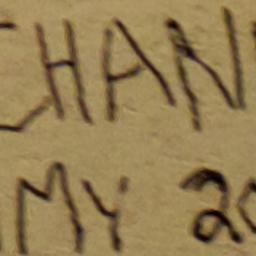 CHAN
MY 20